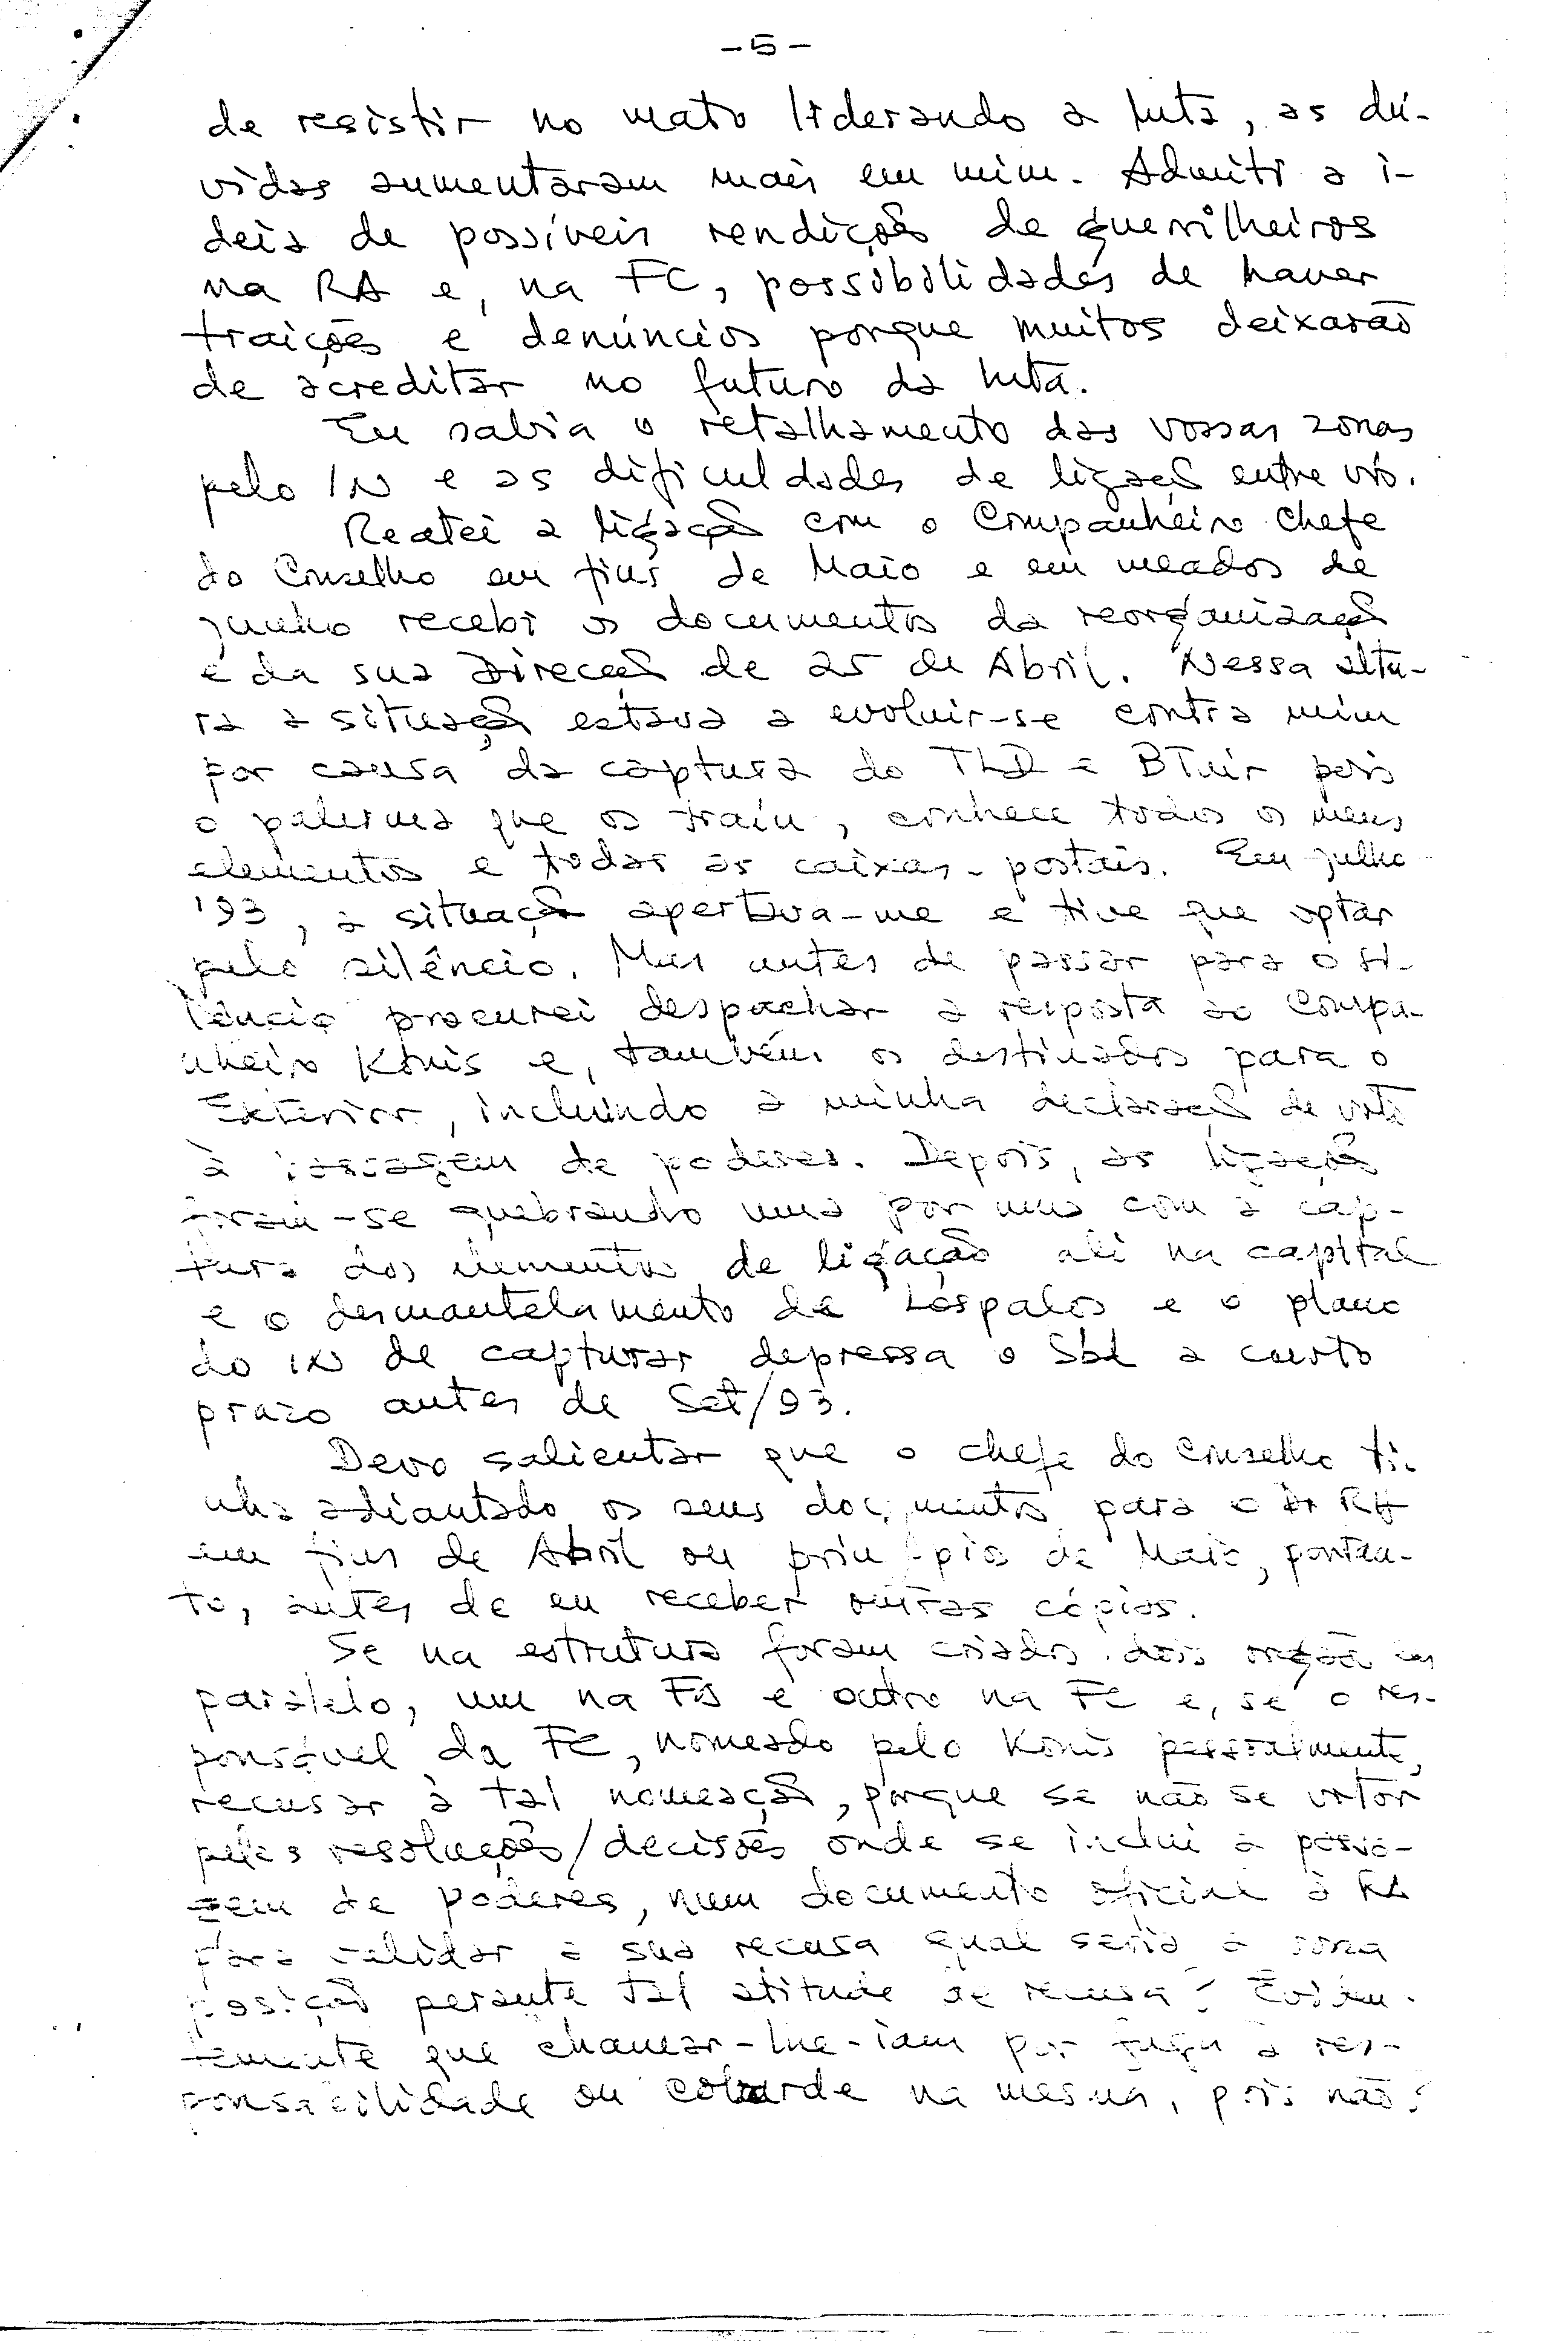 -5-
de resistir no mato liderando a luta, as dú-
vidas aumentaram mais em mim. Admiti a i-
deia de possíveis rendições de guerrilheiros
na RA e, na FC, possibilidades de haver
traições e denúncias porque muitos deixarão
de acreditar no futuro da luta.
Eu sabia o retalhamento das vossas zonas
pelo IN e as dificuldades de ligação entre vós.
Reatei a ligação com o Companheiro Chefe
do Conselho em fins de Maio e em meados de
junho recebi os documentos da reorganização
e da sua Direcção de 25 de Abril. Nessa altu-
ra a situação estava a evoluir-se contra mim
por causa da captura do TLD e BTuir pois
o palerma que os traiu, conhece todos os meus
elementos e todas as caixas-postais. Em julho
'93, a situação apertava-me e tive que optar
pelo silêncio. Mas antes de passar para o si-
lêncio procurei despachar a resposta ao Compa-
nheiro Konis e, também os destinados para o
Exterior, incluindo a minha declaração de voto
à passagem de poderes. Depois, as ligações
foram-se quebrando uma por uma com a cap-
tura dos elementos de ligação ali na capital
e o desmantelamento de Lospalos e o plano
do IN de capturar depressa o Sbl a curto
prazo antes de Set/93.
Devo salientar que o chefe do Conselho ti-
nha adiantado os seus documentos para o RH
em fins de Abril ou princípios de Maio, portan-
to, antes de eu receber outras cópias.
Se na estrutura foram criados dois orgãos em
paralelo, um na FA e outro na FC e, se o res-
ponsável da FC, nomeado pelo Konis pessoalmente,
recusar à tal nomeação, porque se não se votou
pelas resoluções/decisões onde se inclui a passa-
gem de poderes, num documento oficial à
para validar a sua recusa qual seria a
posição perante tal atitude de recusa? Eviden-
temente que chamar-lhe-iam por fuga à res-
ponsabilidade ou cobarde na mesma, pois não?